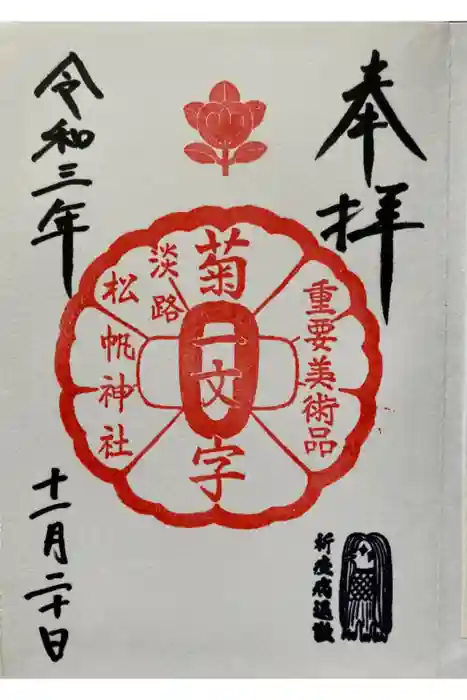 奉拝
重要美術品
菊一文字
淡路
松帆神社
令和三年
十一月二十日
祈疫病退散